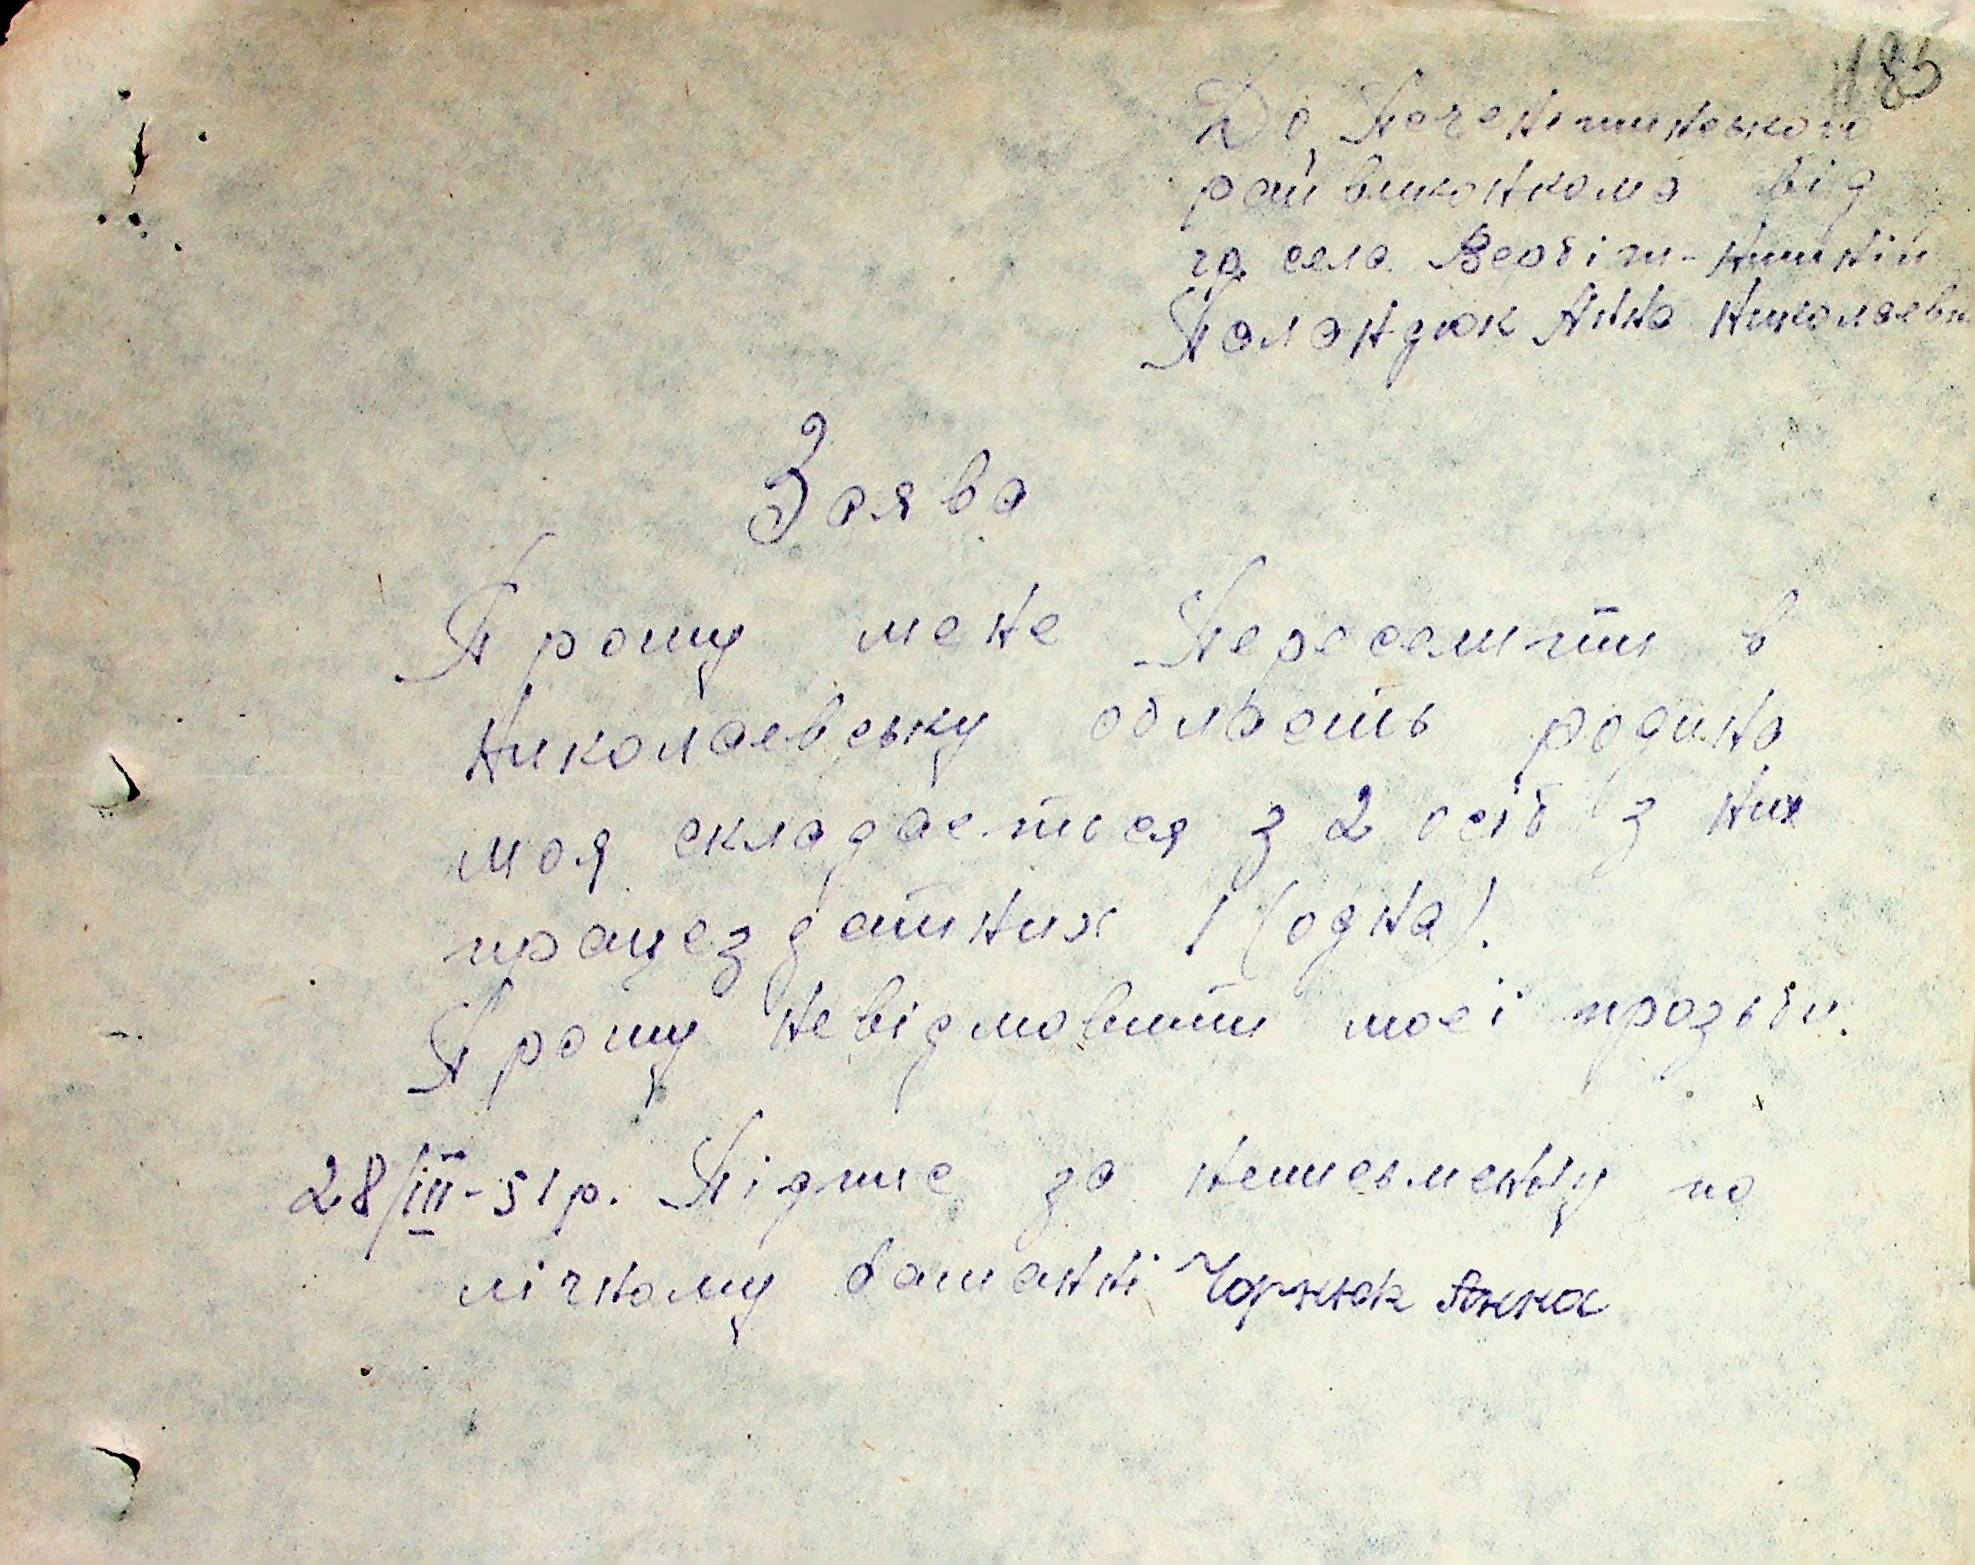 185
До Печеніжинського
райвиконкома від
гр. села Вербіж-нижній
Паландюк Анна Николаевн
Заява
Прошу мене Переселити в
Николаевську область родина
моя складаеться з 2 осіб з них
працездатних 1 (одна).
Прошу невідмовити моеї прозьби.
28/III-51р. Підпис за неписьменну по
лічному баданні Чорнюк Анна